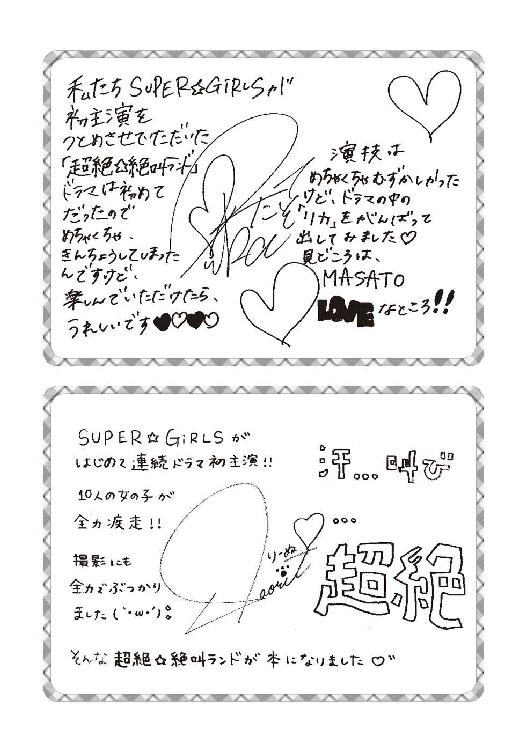 私たち SUPER☆GiRLSが
初主演を
つとめさせていただいた
「超絶☆絶叫ランド」
ドラマは初めて
だったので
めちゃくちゃ、
きんちょうしてしまった
んですけど、
楽しんでいただけたら、
うれしいです♥♡♥♡
演技は
めちゃくちゃむずかしかった
けど、ドラマの中の
「リカ」をがんばって
出してみました♡
見どころは、
MASATO
LOVEなところ!!
SUPER☆GiRLSが
はじめて連続ドラマ初主演!!
10人の女の子が
全力疾走!!
撮影にも
全力でぶつかり
ました(´・ω・`)
りーぬ
汗…叫び
…
超絶
そんな 超絶☆絶叫ランドが 本になりました♡